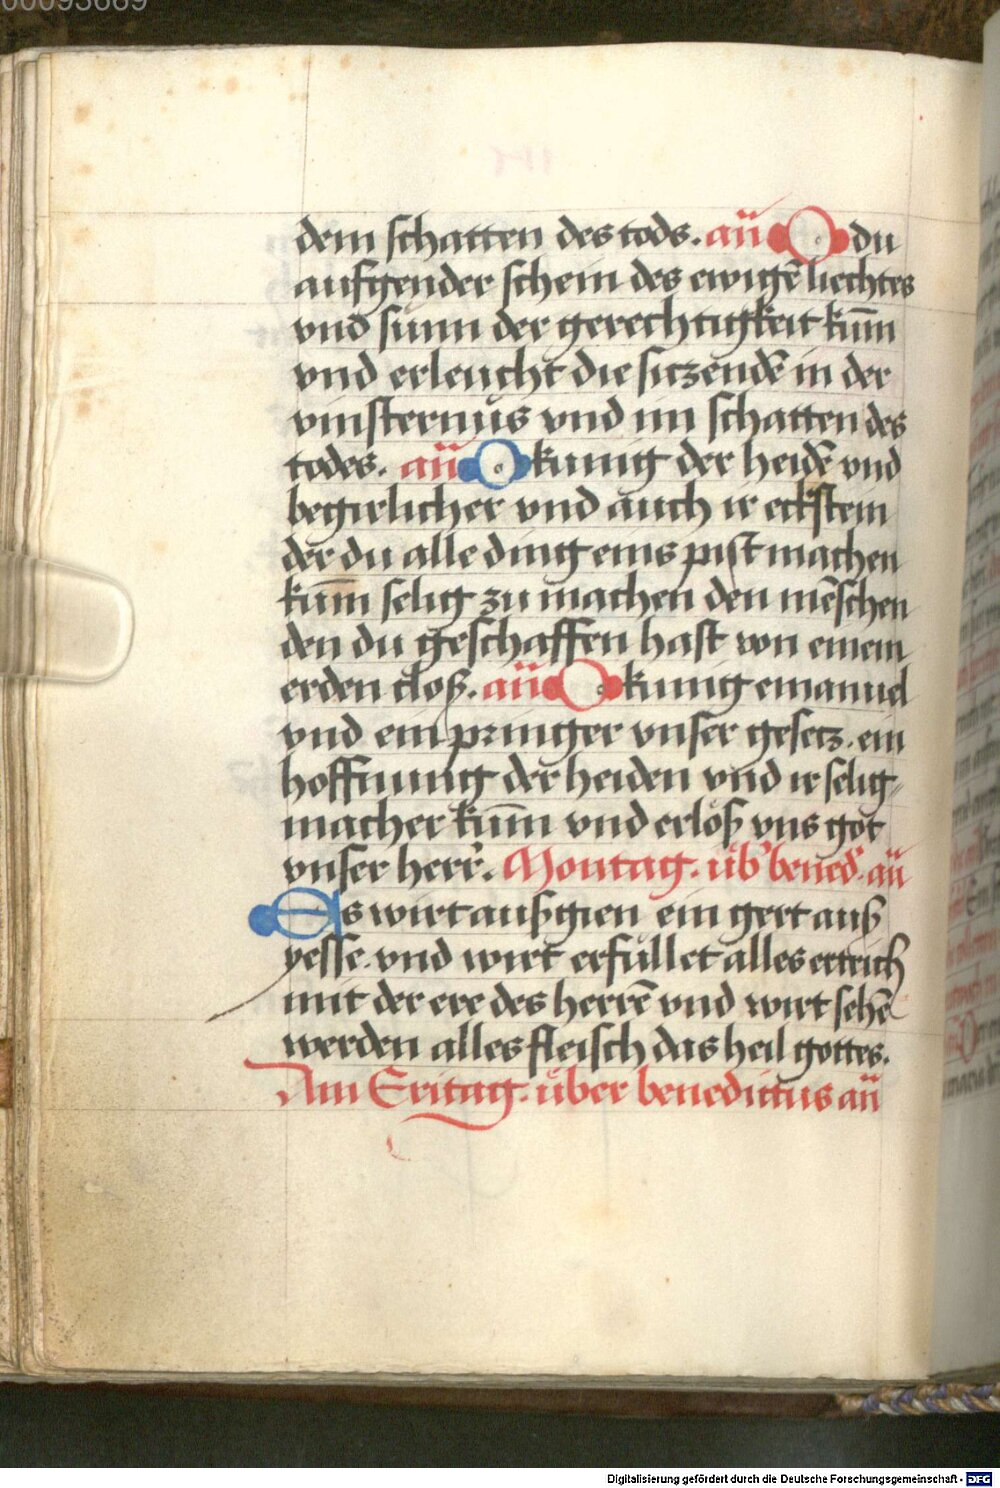 00093669
dem schatten des tods. an̈ O du
aufgender schein des ewigē liechtes
vnd sunn der gerechtigkeit kum̄
vnd erleucht die siczendē in der
vinsternüs vnd im schatten des
todes. an̈ O kunig der heidē vnd
begirlicher vnd auch ir eckstein
der du alle ding eins pist machen
kum̄ selig zu machen den mēschen
den du geschaffen hast von einem
erden cloß. an̈ O kunig emanuel
vnd ein pringer vnser gesecz. ein
hoffnung der heiden vnd ir selig-
macher kum̄ vnd erlöß vns got
vnser herr. Montag. üb' bened'. an̈
Es wirt außgien ein gert auß
yesse. vnd wirt erfüllet alles ertrich
mit der ere des herrē vnd wirt sehē
werden alles fleisch das heil gottes.
Am Eritag. über benedictus an̈
Digitalisierung gefördert durch die Deutsche Forschungsgemeinschaft - DFG